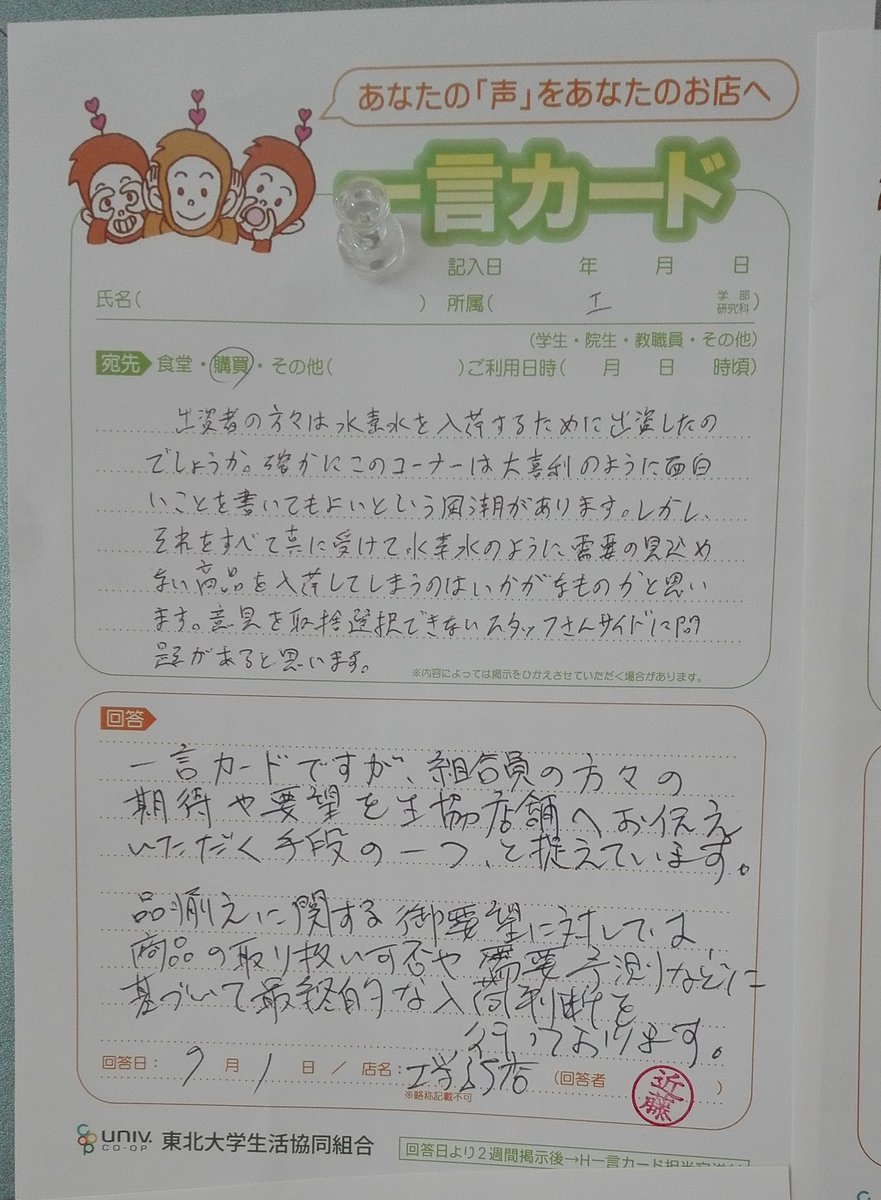 あなたの「声」をあなたのお店へ
一言カード
記入日 年 月 日
氏名( ) 所属( 工 学部 研究科)
(学生・院生・教職員・その他)
宛先 食堂・購買・その他( )ご利用日時( 月 日 時頃)
出資者の方々は水素水を入荷するために出資したの
でしょうか。確かにこのコーナーは大喜利のように面白
いことを書いてもよいという風潮があります。しかし、
それをすべて真に受けて水素水のように需要の見込め
ない商品を入荷してしまうのはいかがなものかと思い
ます。意見を取捨選択できないスタッフさんサイドに問
題があると思います。
※内容によっては掲示をひかえさせていただく場合があります。
回答
一言カードですが、組合員の方々の
期待や要望を生協店舗へお伝え
いただく手段の一つ、と捉えています。
品揃えに関する御要望に対しては、
商品の取り扱い可否や需要予測などに
基づいて最終的な入荷判断を
行っております。
回答日: 9 月 1 日 / 店名: 工学部店 (回答者 近藤 )
※略称記載不可
univ. CO-OP 東北大学生活協同組合
回答日より2週間掲示後→H一言カード担当宛